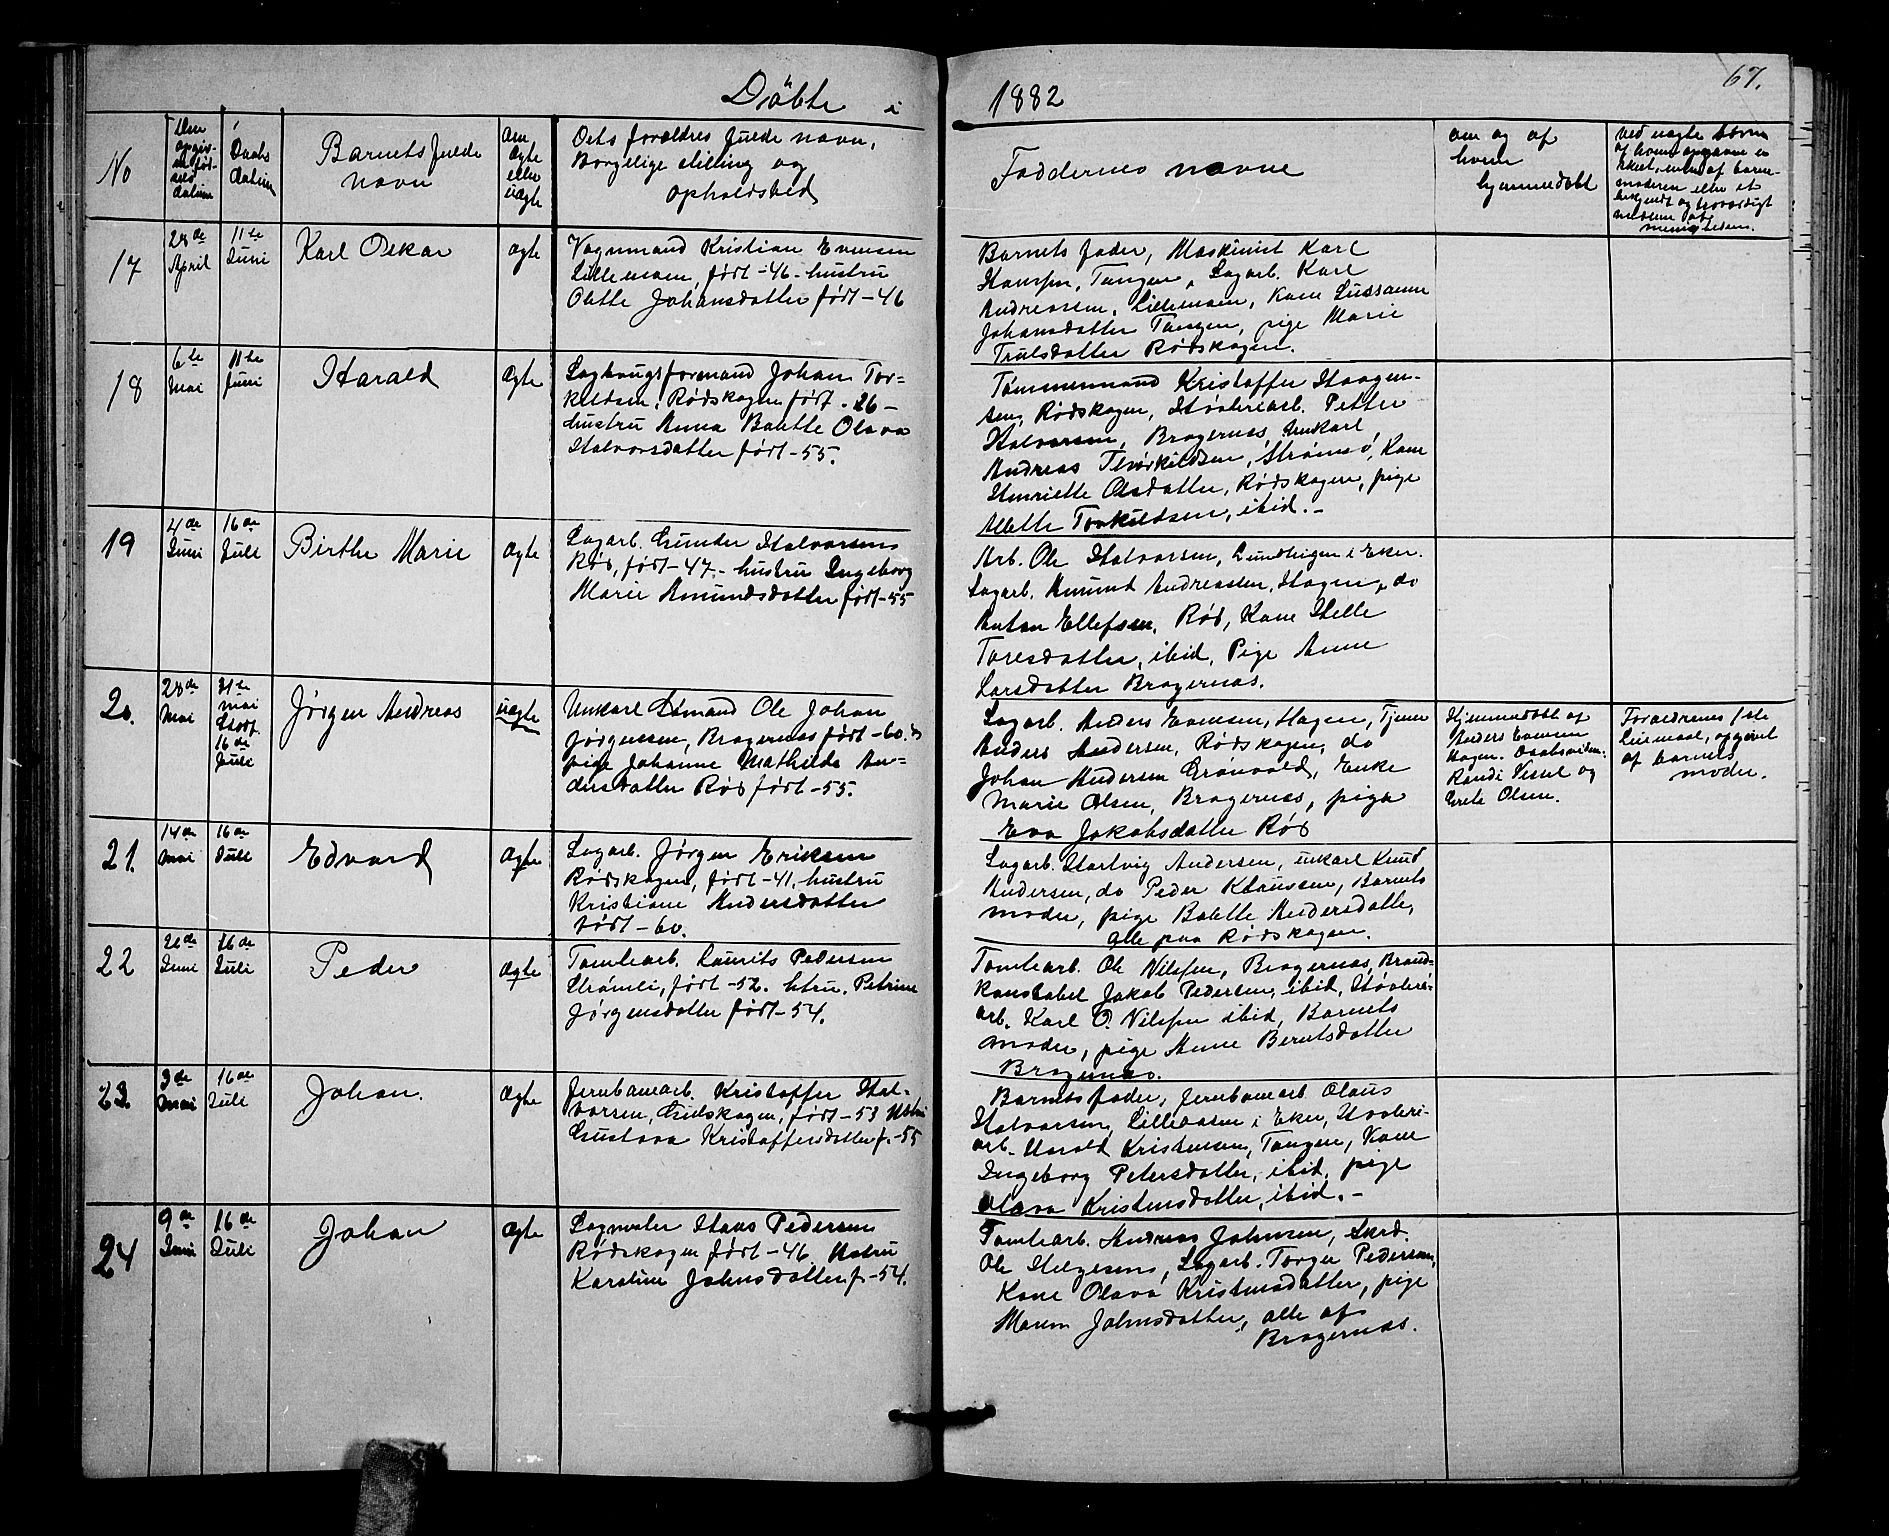 Döbte i
1882
67.
No
Den opgiv- ne föd- sels datum
Daabs datum
Barnets fulde navn
Om ægte eller uægte
Dets foraldres fulde navn,
Borgelige stilling og
opholdsted
Faddernes navne
om og af hvem hjemmedøbt
17
28de April
11te Juni
Karl Oskar
ægte
Vognmand Kristian Evensen
Lillemoen, født -46- hustru
Olette Johansdatter født -46
Barnets fader, Maskinist Karl
Hanssen, Tangen, Sagarb. Karl
Andreassen, Lillemoen, Kone Sussanne
Johansdatter Tangen, pige Marie
Trulsdatter Rødskogen.
18
6te Mai
11te Juni
Harald
Ægte
Saghaugsformand Johan Tor=
kildsen, Rødskogen født - 26 -
hustru Anna Bolette Olava
Halvorsdatter født -55.
Tømmermand Kristoffer Haagen-
sen, Rødskogen, Støberiarb. Petter
Halvorsen, Bragernes, Unkarl
Andreas Thorkildsen, Strømsø, Kone
Henriette Olsdatter, Rødskogen, pige
Alette Torkildsen, ibid. -
19
4de Juni
16de Juli
Birthe Marie
ægte
Sagarb. Gunder Halvorsens
Rød, født -47.- hustru Ingeborg
Marie Amundsdatter født -55
Arb. Ole Halvorsen, Lundhigen i Eker.
Sagarb. Amund Andreassen, Hagen, do
Anton Ellefsen, Rød, Kone Helle
Toresdatter, ibid, Pige Anne
Larsdatter Bragernæs.
20.
28de Mai
31te mai
16de Juli
Jørgen Andreas
uægte
Unkarl Sømand Ole Johan
Jørgensen, Bragernæs født -60. &
pige Johanne Mathilde An-
dersdatter Rød født -55.
Sagarb. Anders Evensen, Hagen, Tjener
Anders Andersen, Rødskogen, do
Johan Andersen Grønvold, Enke
Marie Olsen, Bragernæs, pige
Eva Jakobsdatter Rød
Hjemmedøbt af
Anders Evensen
Hagen. Daabsvidne:
Randi Vessel og
Grete Olsen.
Foraeldrenes 1ste
Leiemaal, opgivet
af barnets
moder.
21.
14de Mai
16de Juli
Edvard
ægte
Sagarb. Jørgen Eriksen
Rødskogen, født -41. hustru
Kristiane Andersdatter
født -60.
Sagarb. Hartvig Andersen, unkarl Knud
Andersen, do Peder Klaussen, Barnets
moder, pige Bolette Andersdatter,
alle paa Rødskogen.
22
Juni
16de Juli
Peder
ægte
Tomtearb. Laurits Pedersen
Strømli, født -52. hstru. Petrine
Jørgensdatter født -54.
Tomtearb. Ole Nilssen, Bragernæs, Brand-
konstabel Jakob Pedersen, ibid, Støberi-
arb. Karl O. Nilssen ibid, Barnets
moder, pige Anne Berntsdatter
Bragernæs.
23.
3de Mai
16de Juli
Johan.
ægte
Jernbanearb. Kristoffer Hal-
vorsen, Gulskogen, født -53 Hstru
Gustava Kristoffersdatter f. -55
Barnets fader, Jernbanearb Olaus
Halvorsen, Lilleaasen i Eker, Støberi-
arb. Harald Kristensen, Tangen, Kone
Ingeborg Petersdatter, ibid, pige
Olava Kristensdatter, ibid. -
24
9de Juni
16de Juli
Johan
ægte
Sagmester Hans Pedersen
Rødskogen født -46. Hstru
Karoline Johnsdatter f. -54.
Tomtearb. Andreas Johnsen,
Ole Helgesens, Sagarb. Torger Pedersen,
Kone Olava Kristensdatter, pige
Maren Johnsdatter, alle af
Bragernæs.